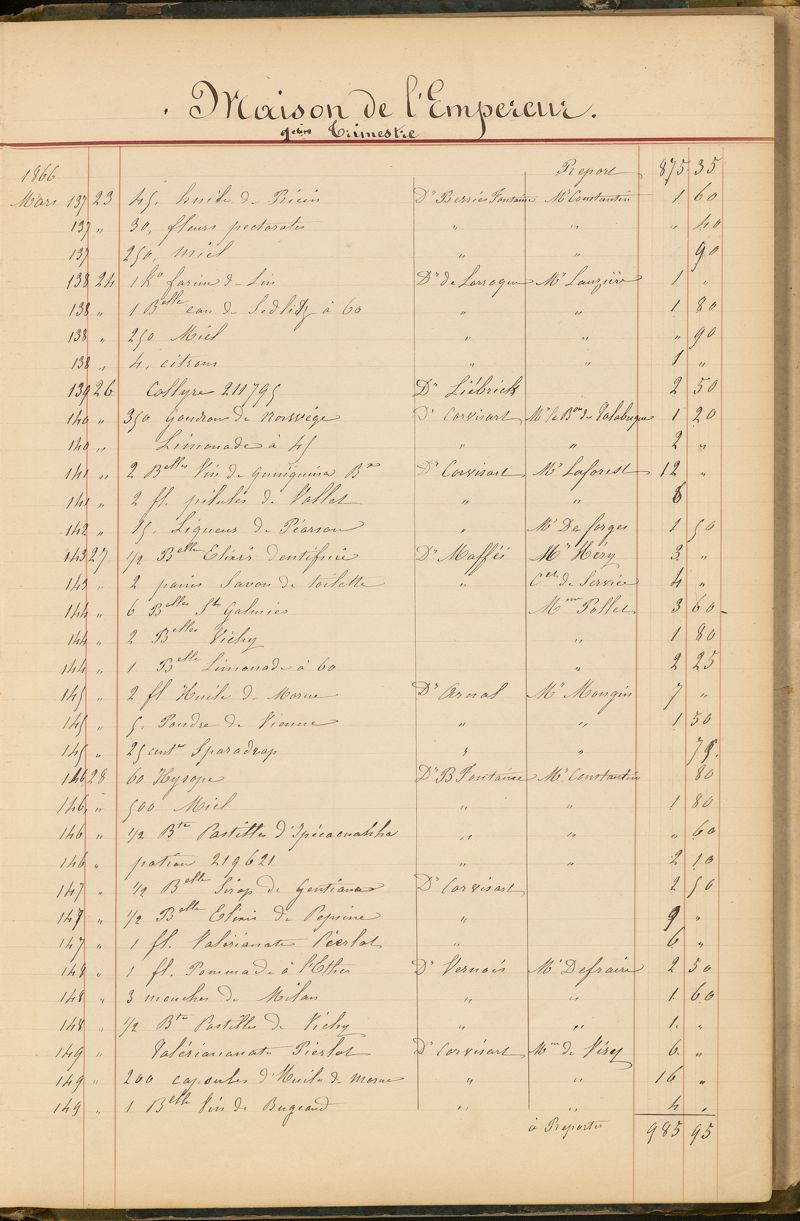 Maison de l'Empereur.
1er Trimestre
1866 Report 875 35
Mars 137 23 45, huile de Ricin Dr Berrier Fontaine Mr Constantin 1 60
137 " 30, fleurs pectorales " " " 40
137 250, miel " " 90
138 24 1 ko farine de Lin Dr de Larroque Mr Lauzière 1 "
138 " 1 Belle eau de Sedlitz à 60 " " 1 80
138 " 250 Miel " " " 90
138 " 4, citrons " " 1 "
139 26 Collyre 211795 Dr Liébrick 2 50
140 " 350 Goudron de Norwége Dr Corvisart Mr le Bon de 1 20
140 " Limonade à 45 " " 2 "
141 " 2 Belles Vin de quinquina Bx Dr Corvisart Mr Laforest 12 "
141 " 2 fl. pilules de Vallet " " 6
142 " 15, Liqueur de Péarson " Mr Desforges 1 50
143 27 1/2 Belle Elixir dentifrice Dr Maffei Mr Héry 3 "
143 " 2 pains Savon de toilette " de Service 4 "
144 " 6 Belles St Galmier Mme Pollet 3 60
144 " 2 Belles Vichy " 1 80
144 " 1 Belle Limonade à 60 " 2 25
145 " 2 fl Huile de Morue Dr Arnal Mr Mongin 7 "
145 " 5, Poudre de Vienne " " 1 50
145 " 25 centre Sparadrap " " 75
146 28 60 Hysope Dr B Fontaine Mr Constantin 80
146 " 500 Miel " " 1 80
146 " 1/2 Bte Pastilles d'Ipécacuahha " " " 60
146 " potion 219621 " " 2 10
147 " 1/2 Belle Sirop de Gentiane Dr Corvisart 2 50
147 " 1/2 Belle Elixir de Pepsine " 9 "
147 " 1 fl. Valérianate Piérlot " 6 "
148 " 1 fl. Pommade à l'Ether Dr Vernois Mr Defraire 2 50
148 " 3 mouches de Milan " " 1 60
148 " 1/2 Bte Pastilles de Vichy " " 1 "
149 " Valérianate Pierlot Dr Corvisart Mme de Viry 6 "
149 " 200 capsules d'Huile de morue " " 16 "
149 " 1 Belle Vin de Bugeaud " " 4 "
à Reporter 985 95